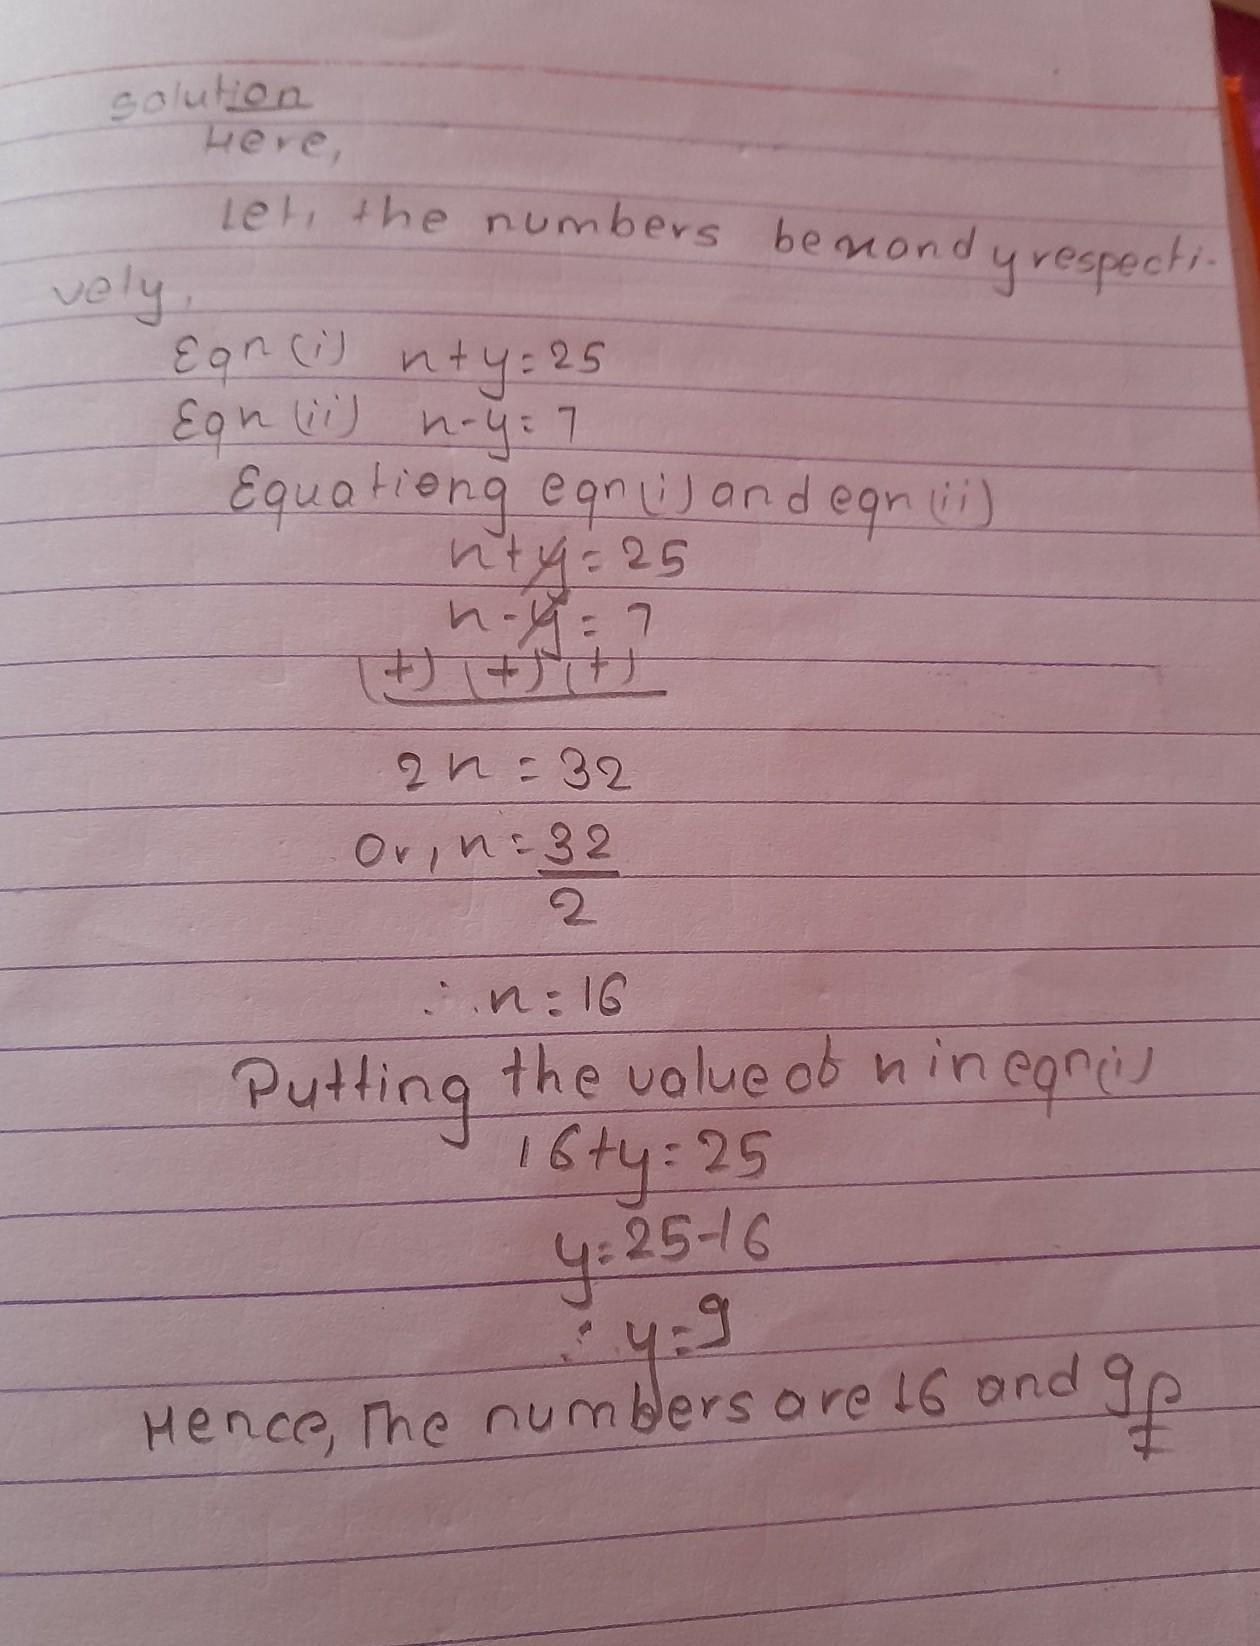 solution
Here,
Let, the numbers be x and y respecti-
vely.
Eqn (i) x+y=25
Eqn (ii) x-y=7
Equationg eqn (i) and eqn (ii)
x+y=25
x-y=7
(+) (+) (+)
2x=32
Or, x=32
2
∴ x=16
Putting the value of x in eqn (i)
16+y=25
y=25-16
∴ y=9
Hence, The numbers are 16 and 9